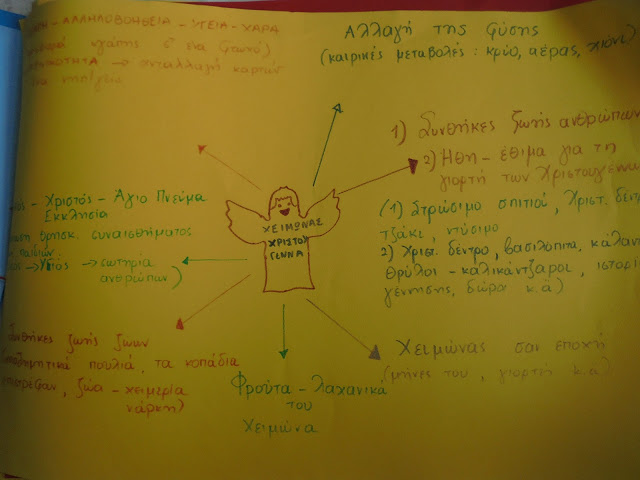 ΑΛΛΗΛΟΒΟΗΘΕΙΑ - ΥΓΕΙΑ - ΧΑΡΑ
αγάπης σ' ένα
→ ανταλλαγή καρτών
Αλλαγή της Φύσης
(καιρικές μεταβολές : κρύο, αέρας, χιόνι
1) Συνθήκες ζωής ανθρώπων
2) Ήθη - έθιμα για τη
γιορτή των Χριστουγέννω
(1) Στρώσιμο σπιτιού, Χριστ. δεντ
τζάκι, ντύσιμο
2) Χριστ. δέντρο, βασιλόπιτα, κάλαν
θρύλοι - καλικάντζαροι, ιστορί
γέννησης, δώρα κ.ά)
- Χριστός - Άγιο Πνεύμα
Εκκλησία
θρησκ. συναισθήματος
παιδιών.
→ Υιός → σωτηρία
ανθρώπων)
ΧΕΙΜΩΝΑΣ
ΧΡΙΣΤΟΥ
ΓΕΝΝΑ
Συνθήκες ζωής ζώων
πουλιά, τα κοπάδια
ζώα - χειμερία
νάρκη)
Φρούτα - λαχανικά
του
Χειμώνα
Χειμώνας σαν εποχή
(μήνες του, γιορτή κ.ά)